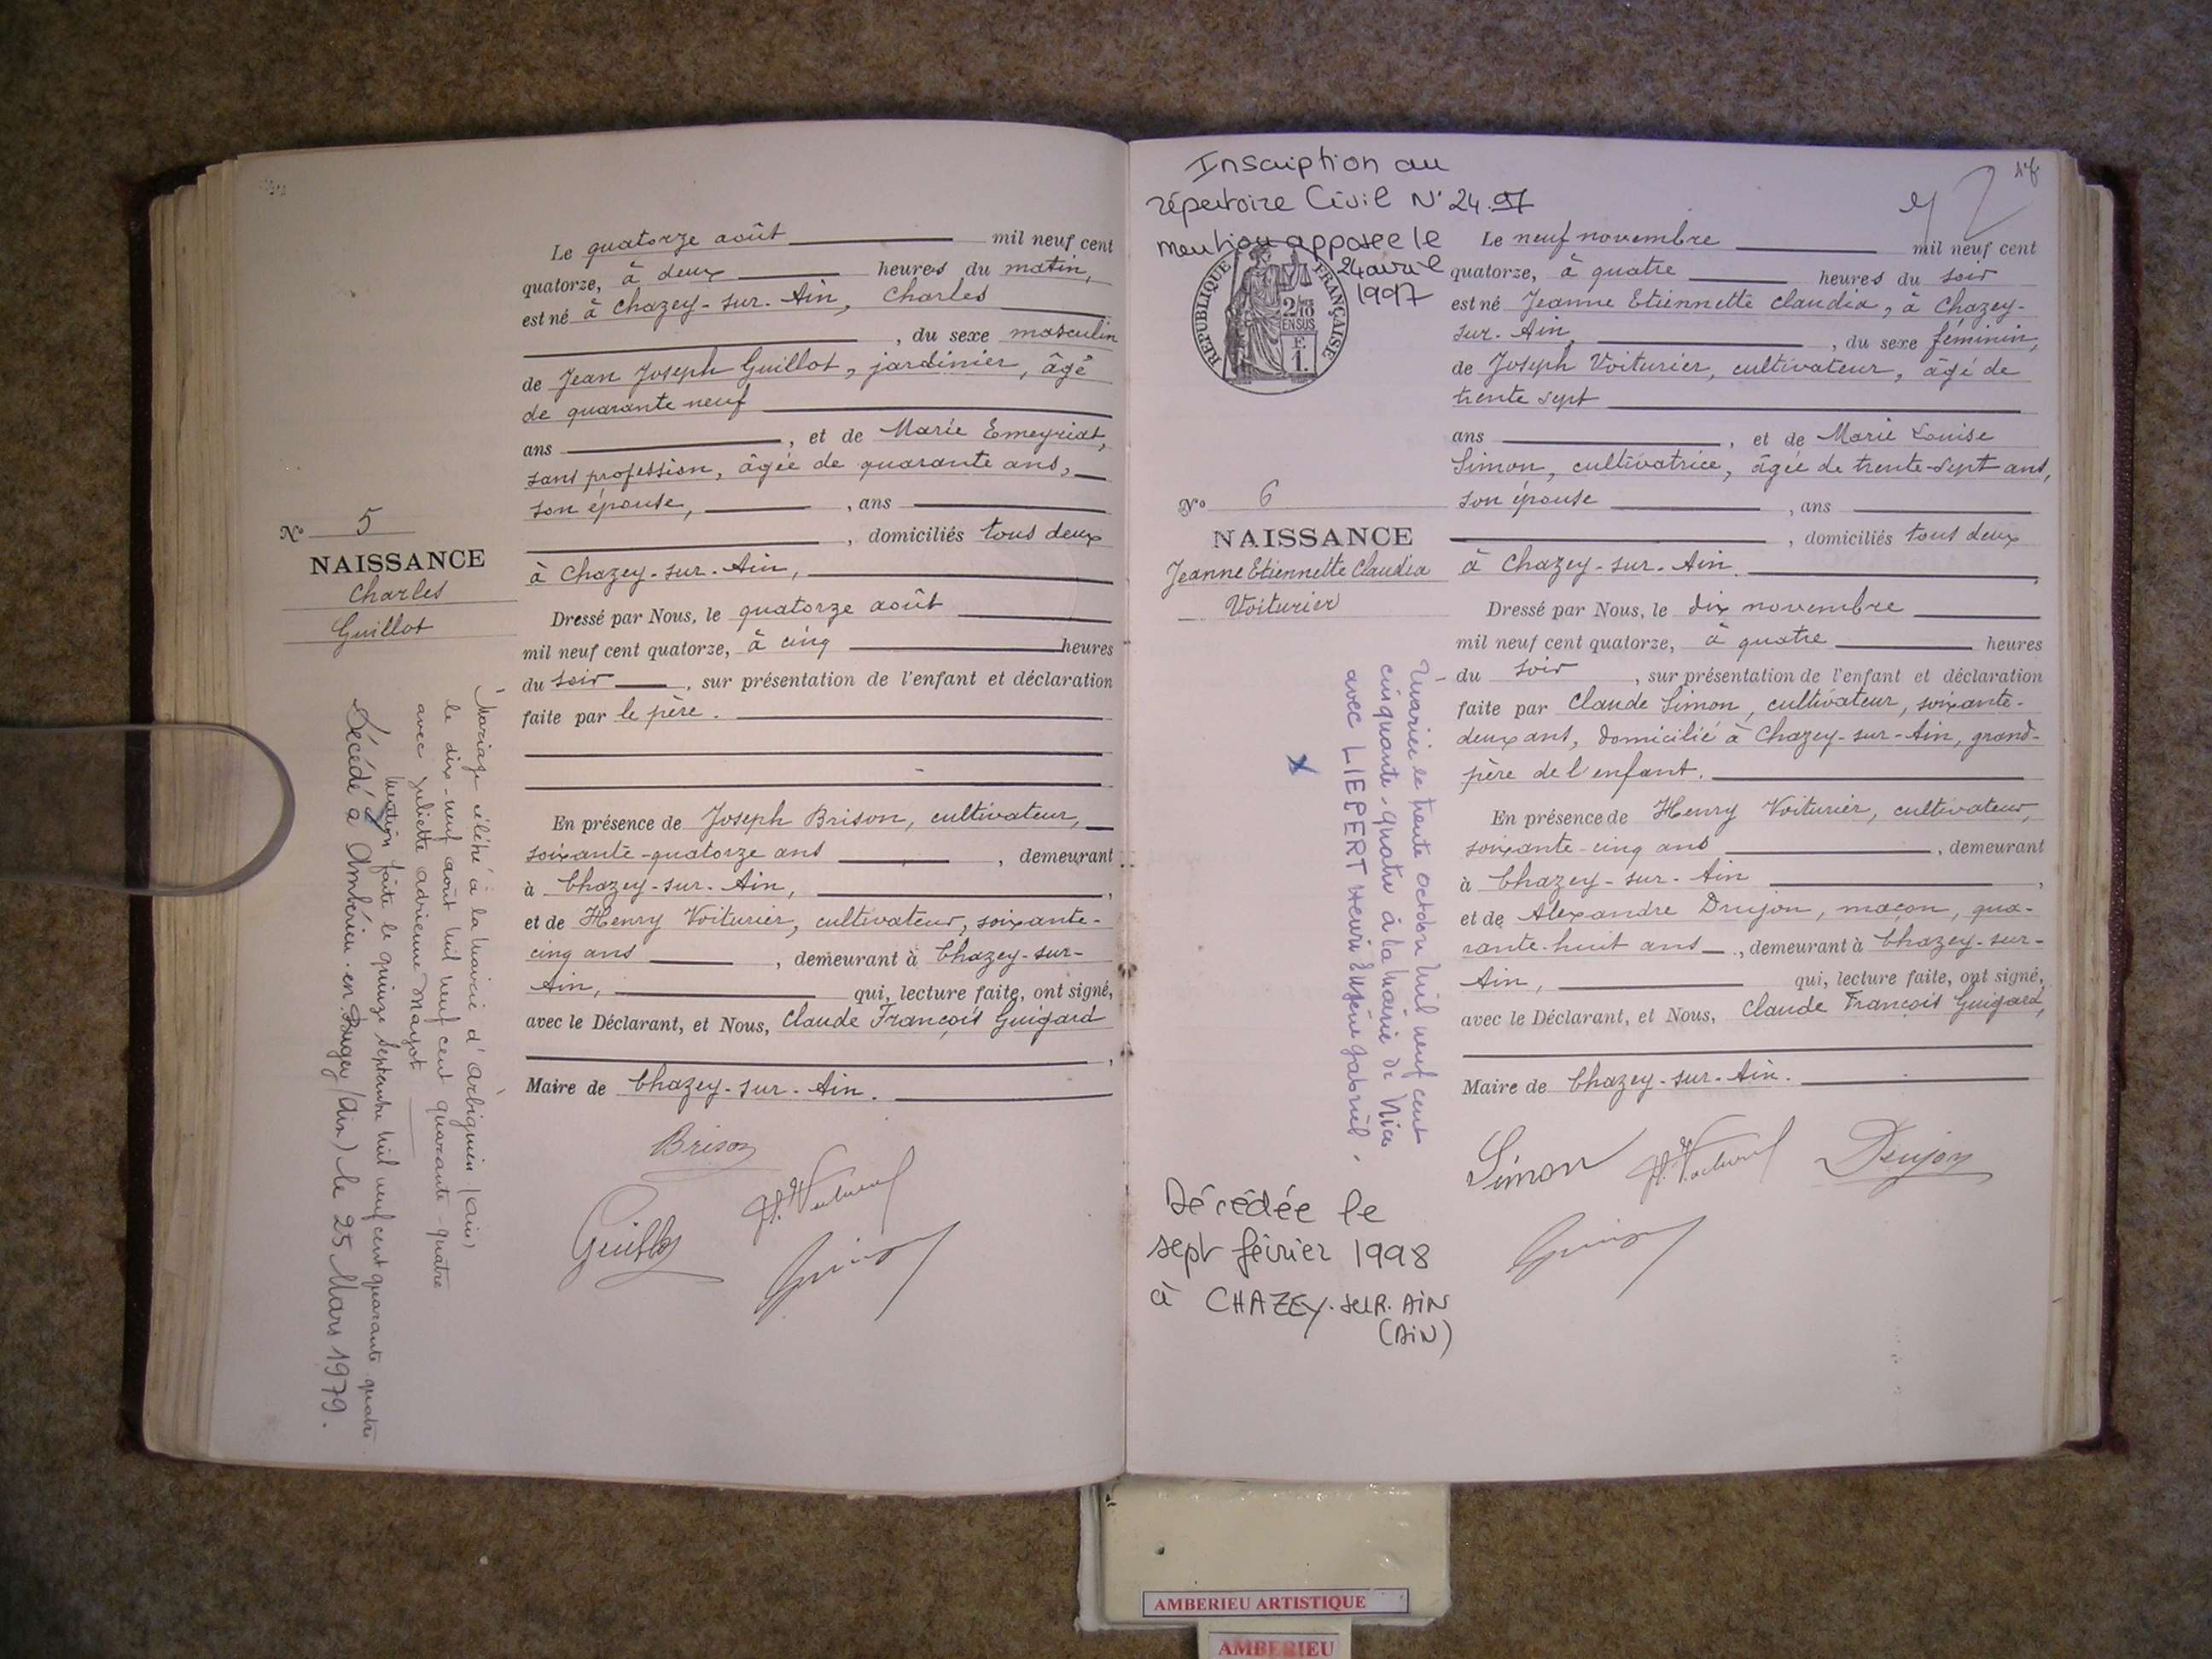 Le quatorze août mil neuf cent
quatorze, à deux heures du matin,
est né à Chazey-sur-Ain, Charles
, du sexe masculin
de Jean Joseph Guillot, jardinier, âgé
de quarante neuf
ans , et de Marie Emeyriat,
sans profession, âgée de quarante ans,
son épouse, , ans
, domiciliés tous deux
à Chazey-sur-Ain,
Dressé par Nous, le quatorze août
mil neuf cent quatorze, à cinq heures
du soir , sur présentation de l'enfant et déclaration
faite par le père.
En présence de Joseph Brison, cultivateur,
soixante-quatorze ans , demeurant
à Chazey-sur-Ain, ,
et de Henry Voiturier, cultivateur, soixante-
cinq ans , demeurant à Chazey-sur-
Ain, qui, lecture faite, ont signé,
avec le Déclarant, et Nous, Claude François Guigard
,
Maire de Chazey-sur-Ain.
Brison
Guillot
N° 5
NAISSANCE
Charles
Guillot
Mariage célébré à la mairie d'Arbignieu (Ain)
le dix-neuf août mil neuf cent quarante-quatre
avec Juliette Adrienne Mayot
Mention faite le quinze septembre mil neuf cent quarante quatre
Décédé à Ambérieu-en-Bugey (Ain) le 25 Mars 1979.
Inscription au
répertoire Civil N° 24.97
mention apposée le
24 avril
1997
RÉPUBLIQUE FRANÇAISE
2/10
EN SUS
F.
1.
Le neuf novembre mil neuf cent
quatorze, à quatre heures du soir
est né Jeanne Etiennette Claudia, à Chazey-
sur-Ain, , du sexe féminin,
de Joseph Voiturier, cultivateur, âgé de
trente sept
ans , et de Marie Louise
Simon, cultivatrice, âgée de trente-sept ans,
son épouse , ans
, domiciliés tous deux
à Chazey-sur-Ain. ,
Dressé par Nous, le dix novembre
mil neuf cent quatorze, à quatre heures
du soir , sur présentation de l'enfant et déclaration
faite par Claude Simon, cultivateur, soixante-
deux ans, domicilié à Chazey-sur-Ain, grand-
père de l'enfant.
En présence de Henry Voiturier, cultivateur,
soixante-cinq ans , demeurant
à Chazey-sur-Ain ,
et de Alexandre Drujon, maçon, qua-
rante-huit ans , demeurant à Chazey-sur-
Ain, qui, lecture faite, ont signé,
avec le Déclarant, et Nous, Claude François Guigard,
Maire de Chazey-sur-Ain.
Simon
Drujon
N° 6
NAISSANCE
Jeanne Etiennette Claudia
Voiturier
Mariée le trente octobre mil neuf cent
cinquante-quatre à la mairie de Nice
avec LIEPERT Henri Eugène Gabriel.
x
Décédée le
sept février 1998
à CHAZEY-SUR-AIN
(AIN)
AMBERIEU ARTISTIQUE
AMBERIEU